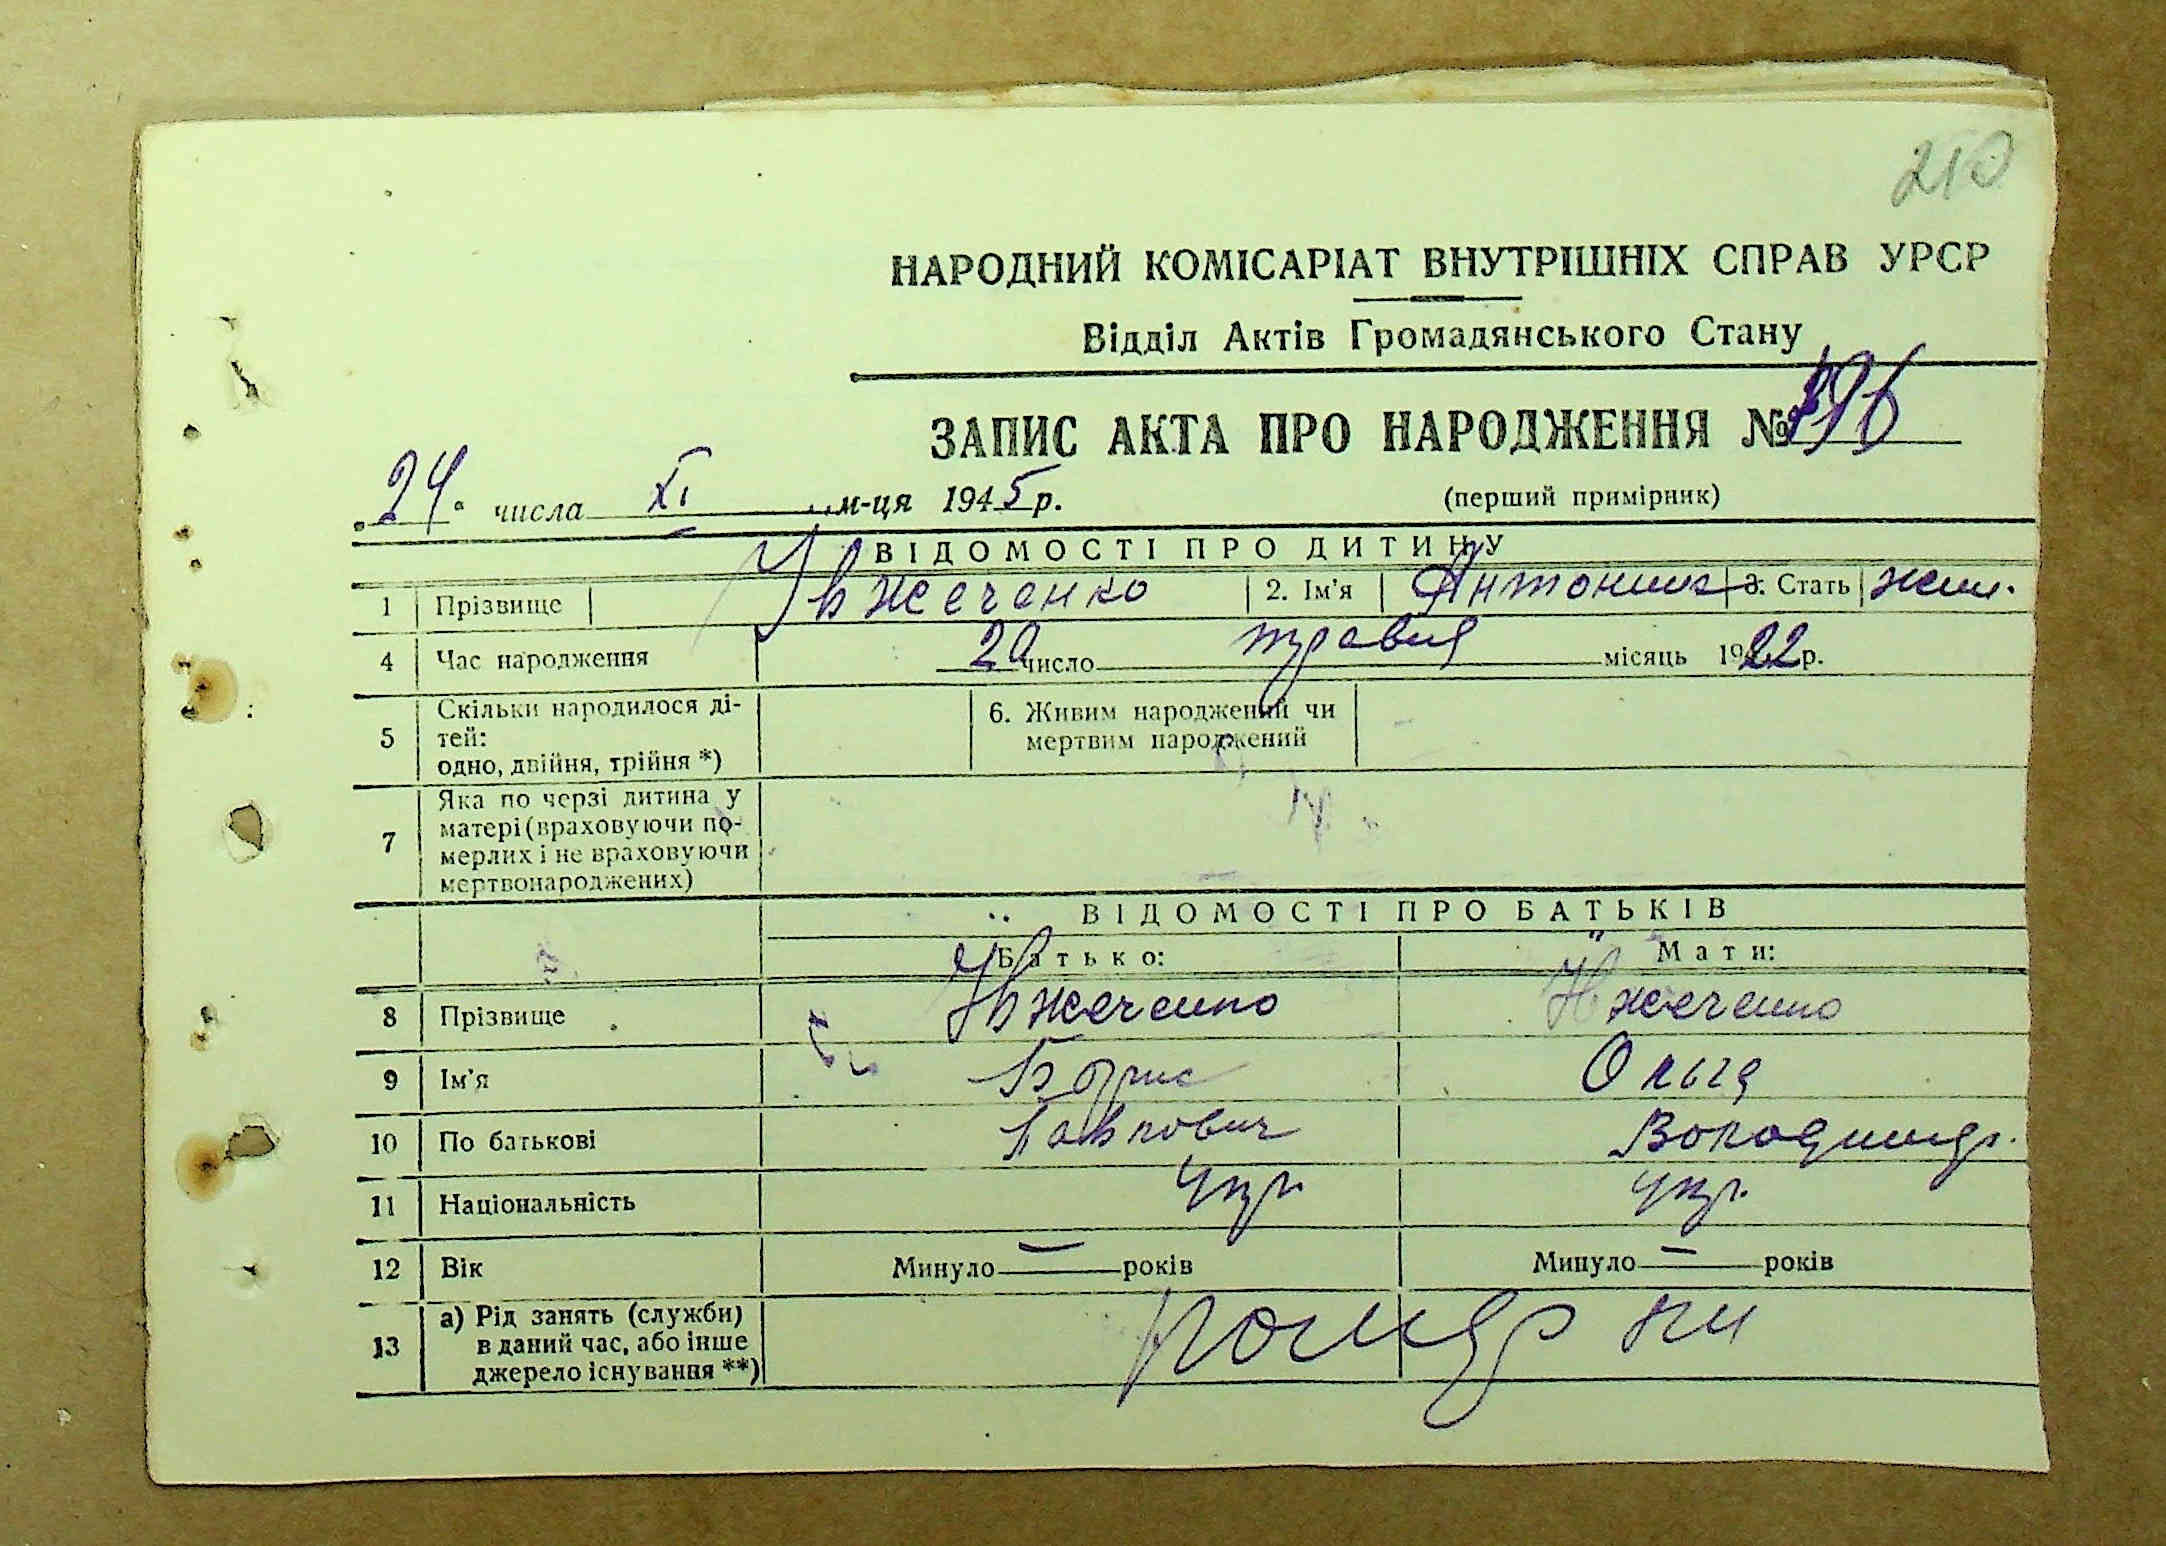 210
НАРОДНИЙ КОМІСАРІАТ ВНУТРІШНІХ СПРАВ УРСР
Відділ Актів Громадянського Стану
ЗАПИС АКТА ПРО НАРОДЖЕННЯ №
24 числа XI м-ця 1945 р. (перший примірник)
ВІДОМОСТІ ПРО ДИТИНУ
1 Прізвище 2. Ім'я Антонина 3. Стать жін.
4 Час народження 20 число травня місяць 1922 р.
5 Скільки народилося ді-
тей:
одно, двійня, трійня *) 6. Живим народжений чи
мертвим народжений
7 Яка по черзі дитина у
матері (враховуючи по-
мерлих і не враховуючи
мертвонароджених)
ВІДОМОСТІ ПРО БАТЬКІВ
Батько: Мати:
8 Прізвище
9 Ім'я Борис Ольга
10 По батькові Павлович Володимир.
11 Національність Укр. Укр.
12 Вік Минуло — років Минуло — років
13 а) Рід занять (служби)
в даний час, або інше
джерело існування **)